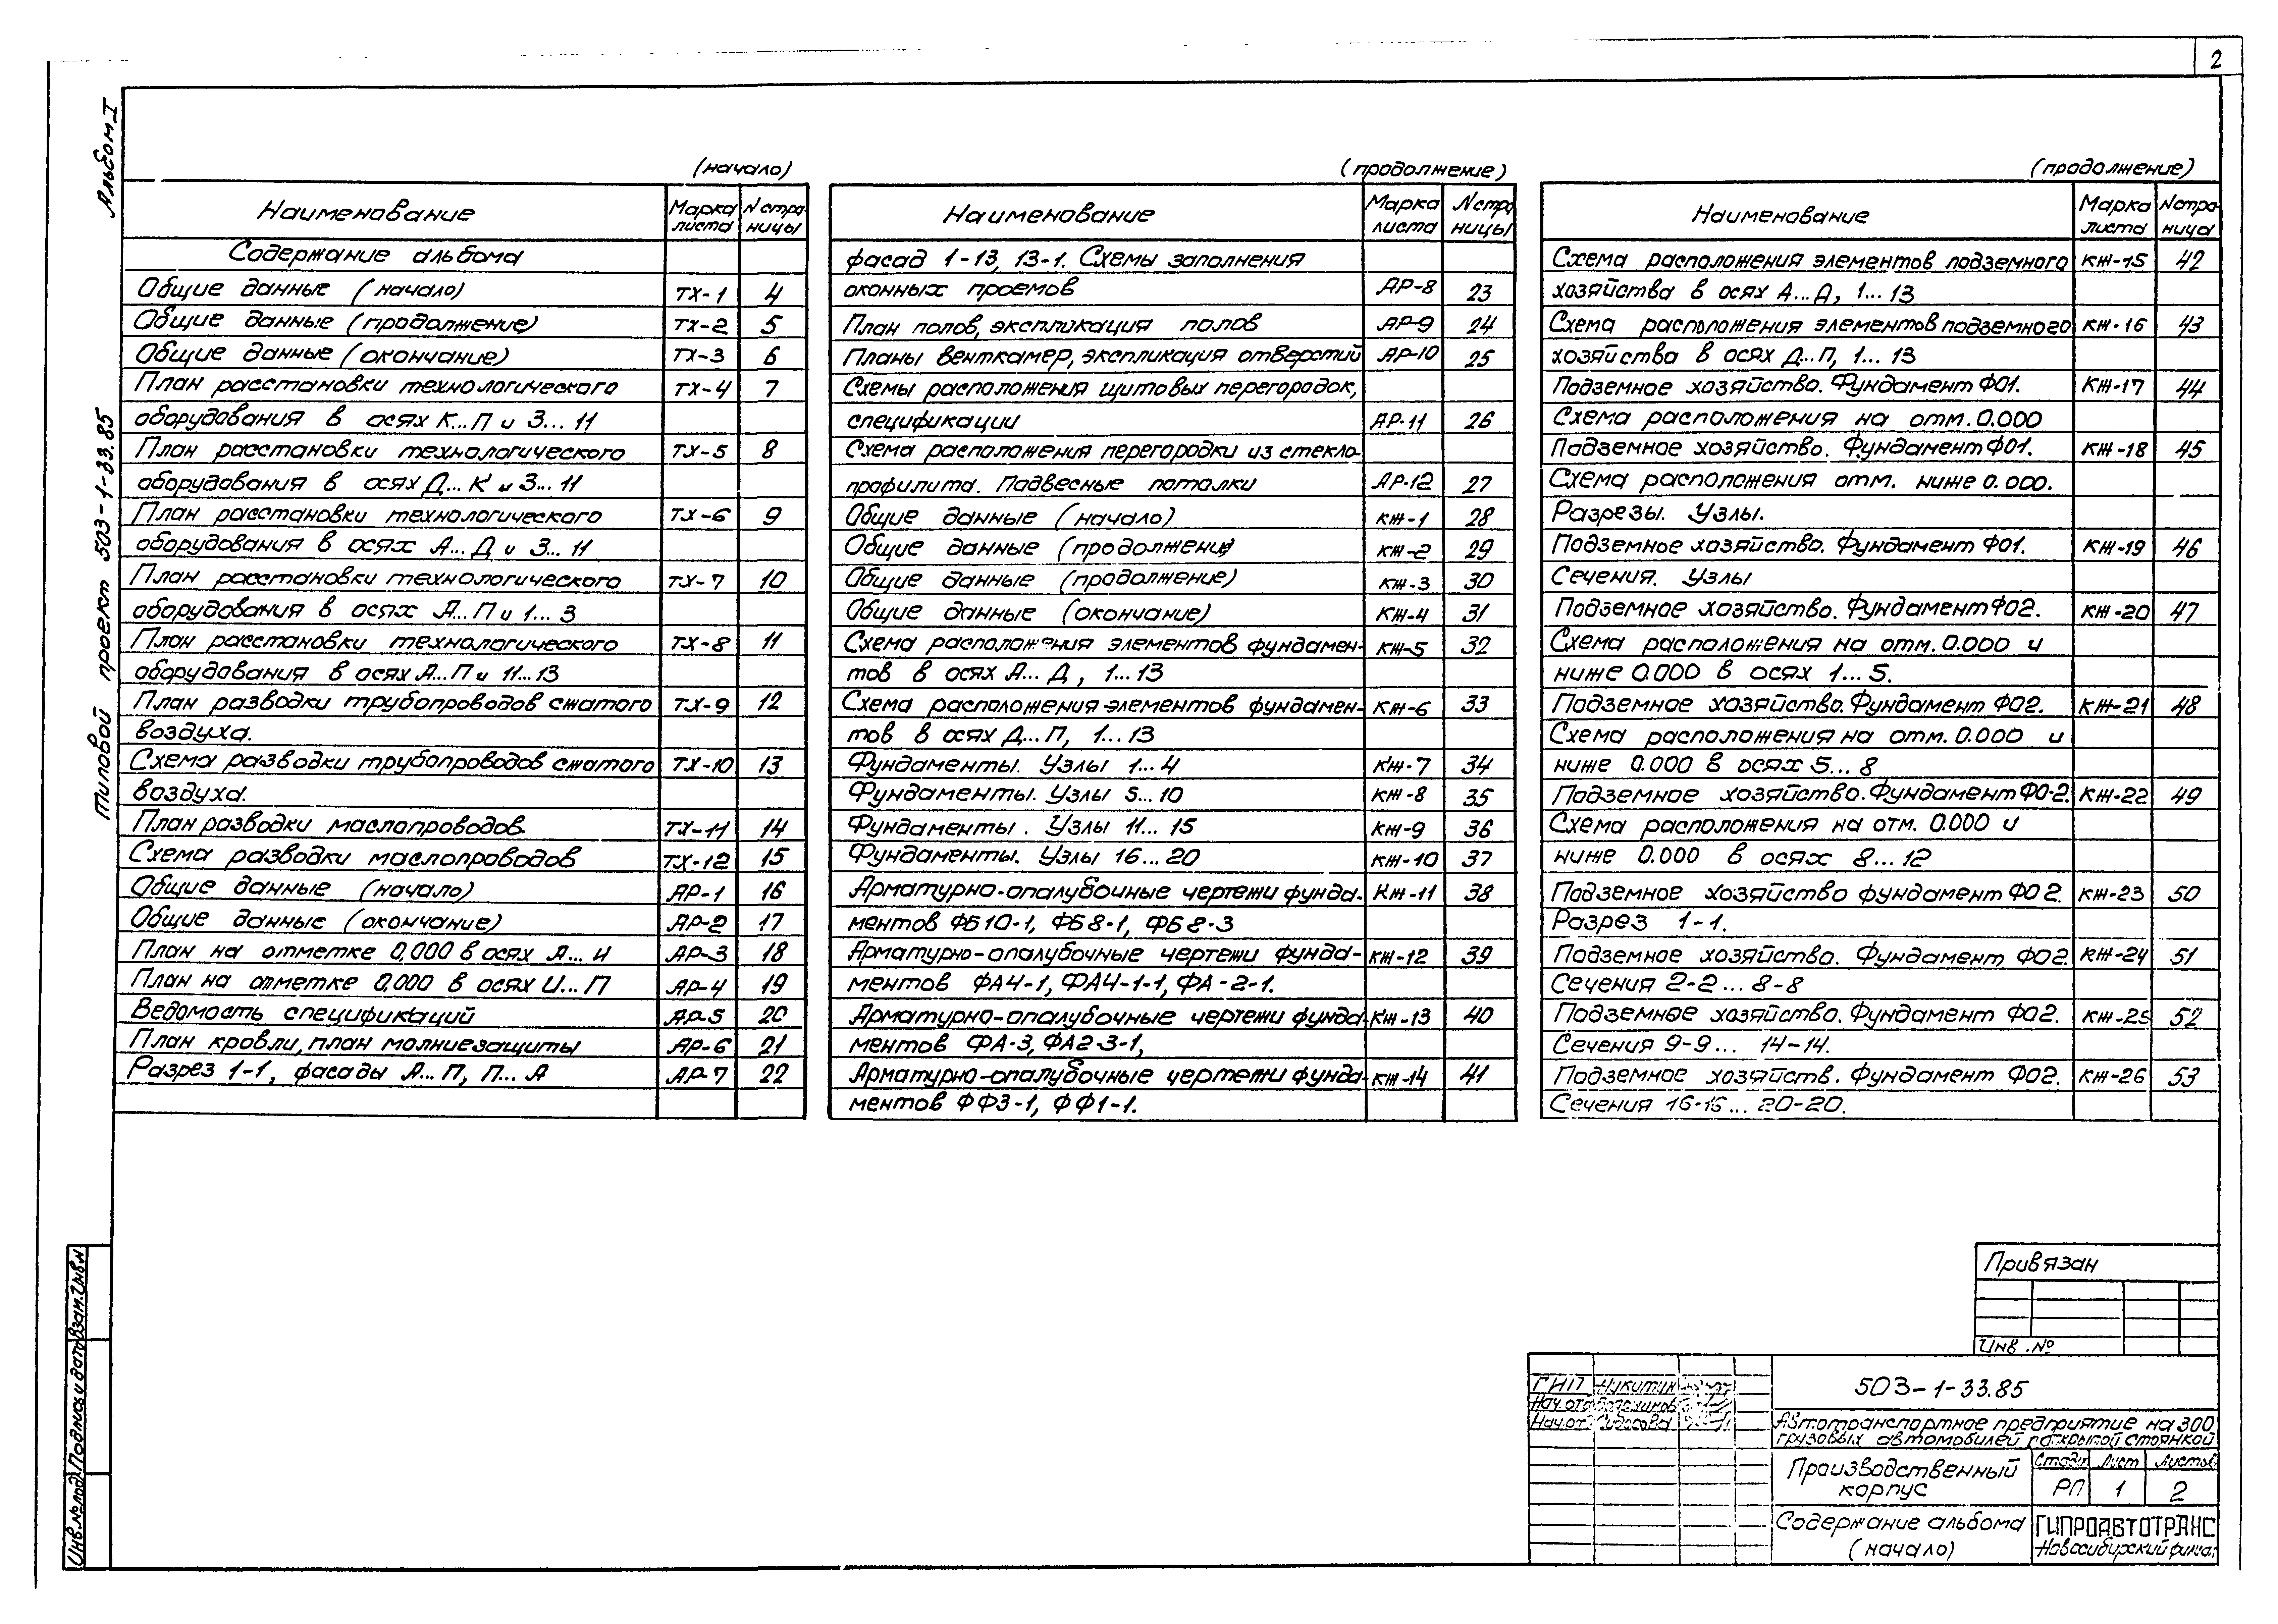 2
Альбом I
Типовой проект 503-1-33.85
(начало)
Наименование Марка листа N стра-ницы
Содержание альбома
Общие данные (начало) ТХ-1 4
Общие данные (продолжение) ТХ-2 5
Общие данные (окончание) ТХ-3 6
План расстановки технологического ТХ-4 7
оборудования в осях К...П и 3...11
План расстановки технологического ТХ-5 8
оборудования в осях Д...К и 3...11
План расстановки технологического ТХ-6 9
оборудования в осях А...Д и 3...11
План расстановки технологического ТХ-7 10
оборудования в осях А...П и 1...3
План расстановки технологического ТХ-8 11
оборудования в осях А...П и 11...13
План разводки трубопроводов сжатого ТХ-9 12
воздуха.
Схема разводки трубопроводов сжатого ТХ-10 13
воздуха.
План разводки маслопроводов. ТХ-11 14
Схема разводки маслопроводов ТХ-12 15
Общие данные (начало) АР-1 16
Общие данные (окончание) АР-2 17
План на отметке 0,000 в осях А...И АР-3 18
План на отметке 0,000 в осях И...П АР-4 19
Ведомость спецификаций АР-5 20
План кровли, план молниезащиты АР-6 21
Разрез 1-1, фасады А...П, П...А АР-7 22
(продолжение)
Наименование Марка листа N стра ницы
фасад 1-13, 13-1. Схемы заполнения
оконных проемов АР-8 23
План полов, экспликация полов АР-9 24
Планы венткамер, экспликация отверстий АР-10 25
Схемы расположения щитовых перегородок,
спецификации АР-11 26
Схема расположения перегородки из стекло-
профилита. Подвесные потолки АР-12 27
Общие данные (начало) КЖ-1 28
Общие данные (продолжение) КЖ-2 29
Общие данные (продолжение) КЖ-3 30
Общие данные (окончание) КЖ-4 31
Схема расположения элементов фундамен- КЖ-5 32
тов в осях А...Д, 1...13
Схема расположения элементов фундамен- КЖ-6 33
тов в осях Д...П, 1...13
Фундаменты. Узлы 1...4 КЖ-7 34
Фундаменты. Узлы 5...10 КЖ-8 35
Фундаменты. Узлы 11...15 КЖ-9 36
Фундаменты. Узлы 16...20 КЖ-10 37
Арматурно-опалубочные чертежи фунда- КЖ-11 38
ментов ФБ10-1, ФБ8-1, ФБ8-3
Арматурно-опалубочные чертежи фунда- КЖ-12 39
ментов ФА4-1, ФА4-1-1, ФА-2-1.
Арматурно-опалубочные чертежи фунда- КЖ-13 40
ментов ФА-3, ФА2-3-1,
Арматурно-опалубочные чертежи фунда- КЖ-14 41
ментов ФФ3-1, ФФ1-1.
(продолжение)
Наименование Марка листа N стра-ница
Схема расположения элементов подземного КЖ-15 42
хозяйства в осях А...Д, 1...13
Схема расположения элементов подземного КЖ-16 43
хозяйства в осях Д...П, 1...13
Подземное хозяйство. Фундамент Ф01. КЖ-17 44
Схема расположения на отм. 0.000
Подземное хозяйство. Фундамент Ф01. КЖ-18 45
Схема расположения отм. ниже 0.000.
Разрезы. Узлы.
Подземное хозяйство. Фундамент Ф01. КЖ-19 46
Сечения. Узлы
Подземное хозяйство. Фундамент Ф02. КЖ-20 47
Схема расположения на отм. 0.000 и
ниже 0.000 в осях 1...5.
Подземное хозяйство. Фундамент Ф02. КЖ-21 48
Схема расположения на отм. 0.000 и
ниже 0.000 в осях 5...8
Подземное хозяйство. Фундамент Ф0-2. КЖ-22 49
Схема расположения на отм. 0.000 и
ниже 0.000 в осях 8...12
Подземное хозяйство фундамент Ф02. КЖ-23 50
Разрез 1-1.
Подземное хозяйство. Фундамент Ф02. КЖ-24 51
Сечения 2-2...8-8
Подземное хозяйство. Фундамент Ф02. КЖ-25 52
Сечения 9-9... 14-14.
Подземное хозяйств. Фундамент Ф02. КЖ-26 53
Сечения 16-16...20-20.
Привязан
Инв. №
ГИП Никитин
Нач.отд
Нач.от
503-1-33.85
Автотранспортное предприятие на 300
грузовых автомобилей с открытой стоянкой
Производственный корпус
Стадия Лист Листов
РП 1 2
Содержание альбома
(начало)
ГИПРОАВТОТРАНС
Новосибирский филиал
Инв.№подл Подпись и дата Взам.инв.н